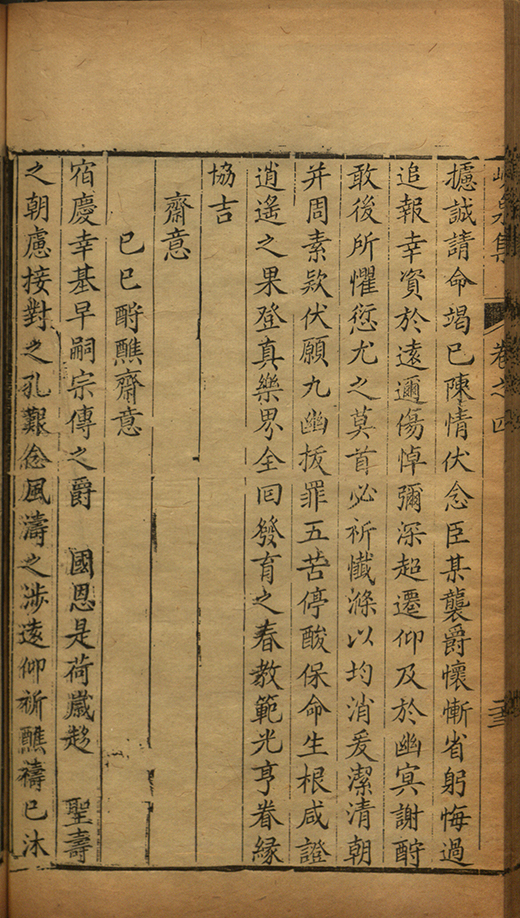 峴泉集 卷之四
攄誠請命竭已陳情伏念臣某襲爵懷慚省躬悔過
追報幸資於遠邇傷悼彌深超遷仰及於幽冥謝酧
敢後所懼愆尤之莫首必祈懺滌以均消爰潔清朝
并周素欵伏願九幽拔罪五苦停酸保命生根咸證
逍遙之果登真樂界全囘發育之春教範光亨眷縁
協吉
齋意
已巳酧醮齋意
宿慶幸基早嗣宗傳之爵 國恩是荷歲趍 聖壽
之朝慮接對之孔艱念風濤之涉遠仰祈醮禱已沐